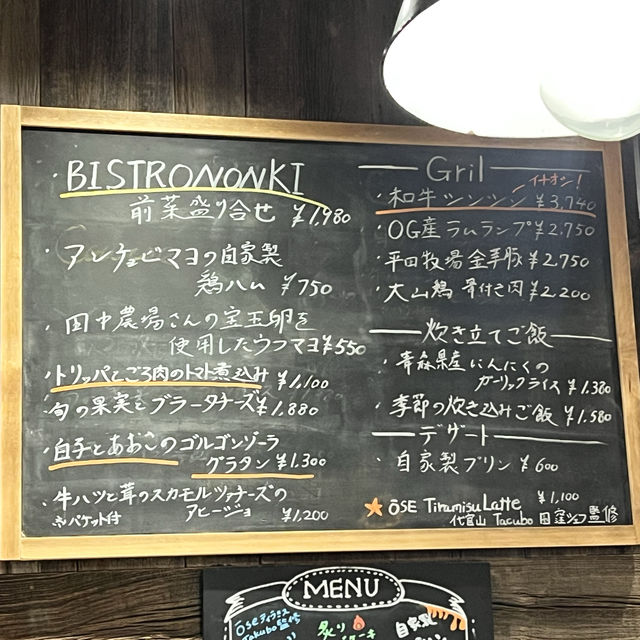 ・BISTRONONKI
前菜盛り合せ ¥1,980
・アンチョビマヨの自家製
鶏ハム ¥750
・田中農場さんの宝玉卵を
使用したウフマヨ ¥550
・トリッパとごろ肉のトマト煮込み ¥1,100
・旬の果実とブラータチーズ ¥1,880
・白子とあおこのゴルゴンゾーラ
グラタン ¥1,300
・牛ハツと茸のスカモルツァチーズの
アヒージョ ¥1,200
※バケット付
Gril
イチオシ!
・和牛シンシン ¥3,740
・OG産ラムランプ ¥2,750
・平田牧場金華豚 ¥2,750
・大山鶏 骨付き肉 ¥2,200
炊き立てご飯
・青森県産にんにくの
ガーリックライス ¥1,380
・季節の炊き込みご飯 ¥1,580
デザート
・自家製プリン ¥600
★ ŌSE Tiramisu Latte ¥1,100
代官山 Tacubo 田窪シェフ監修
MENU
ŌSEティラミス
Takubo監修
炙り
ケーキ
自家製